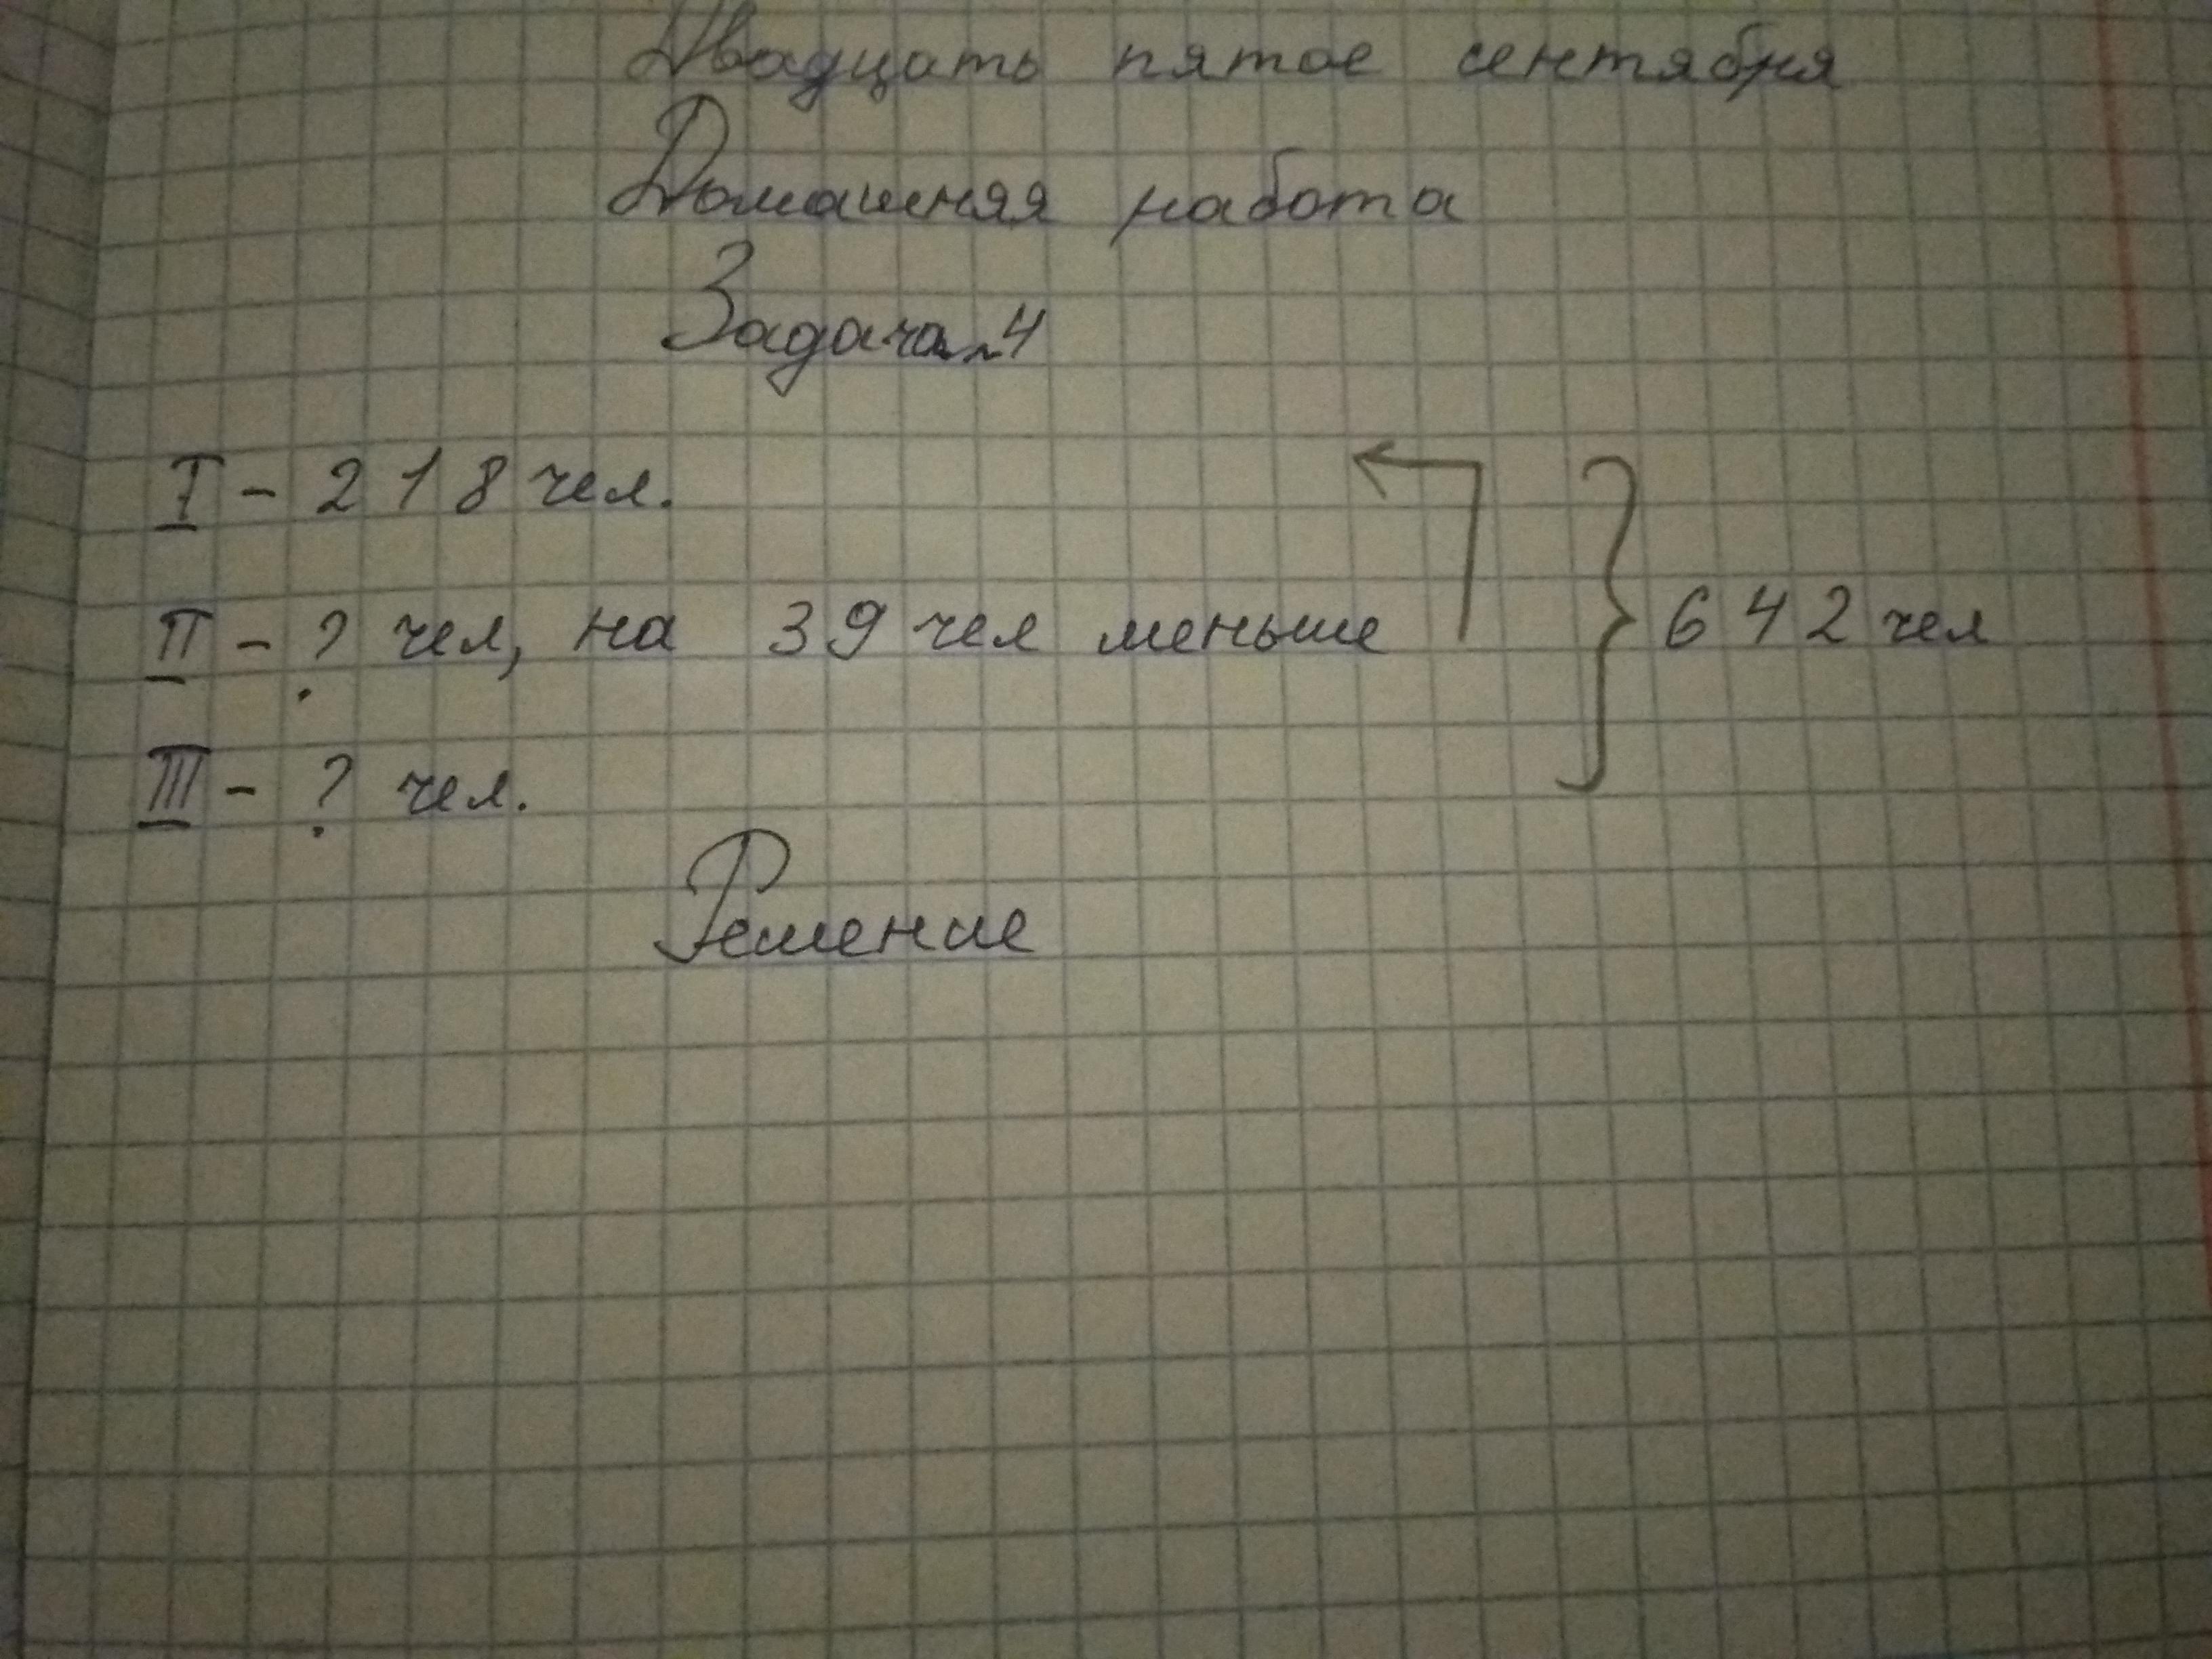 Двадцать пятое сентября
Домашняя работа
Задача 4
I - 218 чел.
II - ? чел, на 39 чел меньше
642 чел
III - ? чел.
Решение